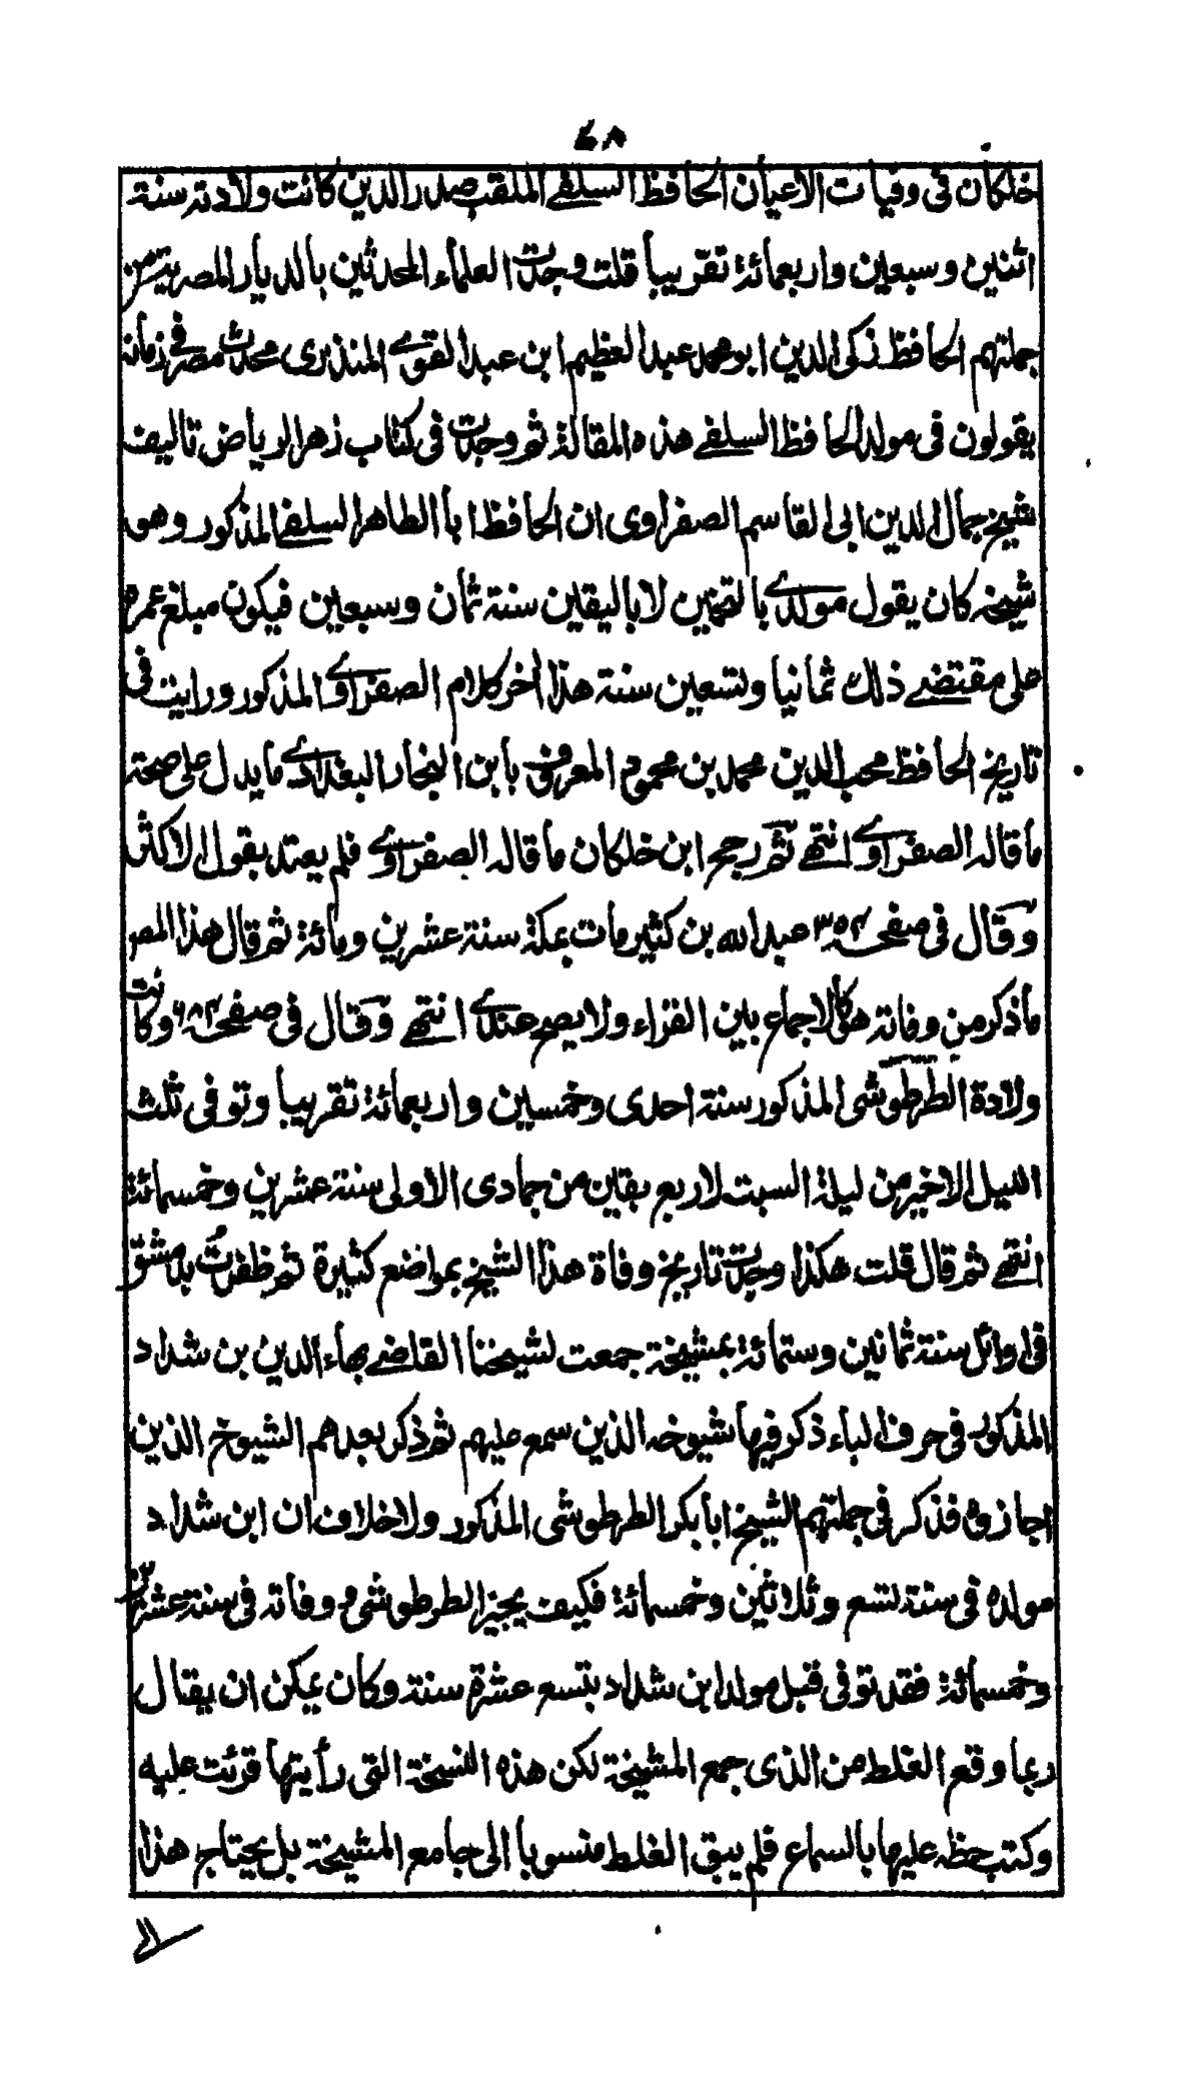 ٤٨
خلكان فى وفيات الاعيان الحافظ السلفے الملقب صدر الدين كانت ولادته سنة
اثنين وسبعين واربعمائة تقريبا قلت وجدت العلماء المحدثين بالديار المصرية من
جملتهم الحافظ زكى الدين ابو محمد عبد العظيم ابن عبد القوے المنذرى محدث مصر فے زمانه
يقولون فى مولد الحافظ السلفے هذه المقالة ثم وجدت فى كتاب زهر الرياض تاليف
شيخ جمال الدين ابى القاسم الصفراوى ان الحافظ ابا الطاهر السلفے المذكور وهو
شيخه كان يقول مولدے بالتخمين لا باليقين سنة ثمان وسبعين فيكون مبلغ عمره
على مقتضے ذلك ثمانيا وتسعين سنة هذا اخر كلام الصفراوے المذكور ورايت فى
تاريخ الحافظ محب الدين محمد بن محمود المعروف بابن النجار البغدادے ما يدل على صحة
ما قاله الصفراوے انتهے ثم رجح ابن خلكان ما قاله الصفراوے فلم يعتد بقول الاكثر
وقال فى صفحـ ٣٥٢ عبد الله بن كثير مات بمكة سنة عشرين ومائة ثم قال هذا المصر
ما ذكر من وفاته هو كالاجماع بين القراء ولا يصح عندے انتهے وقال فى صفحـ ٦٨٢ وكانت
ولادة الطرطوشى المذكور سنة احدى وخمسين واربعمائة تقريبا وتوفى ثلث
الليل الاخير من ليلة السبت لاربع بقين من جمادى الاولى سنة عشرين وخمسمائة
انتهے ثم قال قلت هكذا وجدت تاريخ وفاة هذا الشيخ بمواضع كثيرة ثم ظفرت بدمشق
فى اوائل سنة ثمانين وستمائة بمشيخة جمعت لشيخنا القاضے بهاء الدين بن شداد
المذكور فى حرف الباء ذكر فيها شيوخه الذين سمع عليهم ثم ذكر بعدهم الشيوخ الذين
اجازوه فذكر فى جملتهم الشيخ ابا بكر الطرطوشى المذكور ولا خلاف ان ابن شداد
مولده فى سنة تسع وثلاثين وخمسمائة فكيف يجيز الطرطوشى ووفاته فى سنة عشرين
وخمسمائة فقد توفى قبل مولد ابن شداد بتسع عشرة سنة وكان يمكن ان يقال
ربما وقع الغلط من الذى جمع المشيخة لكن هذه النسخة التى رأيتها قرئت عليه
وكتب حظه عليها بالسماع فلم يبق الغلط منسوبا الى جامع المشيخة بل يحتاج هذا